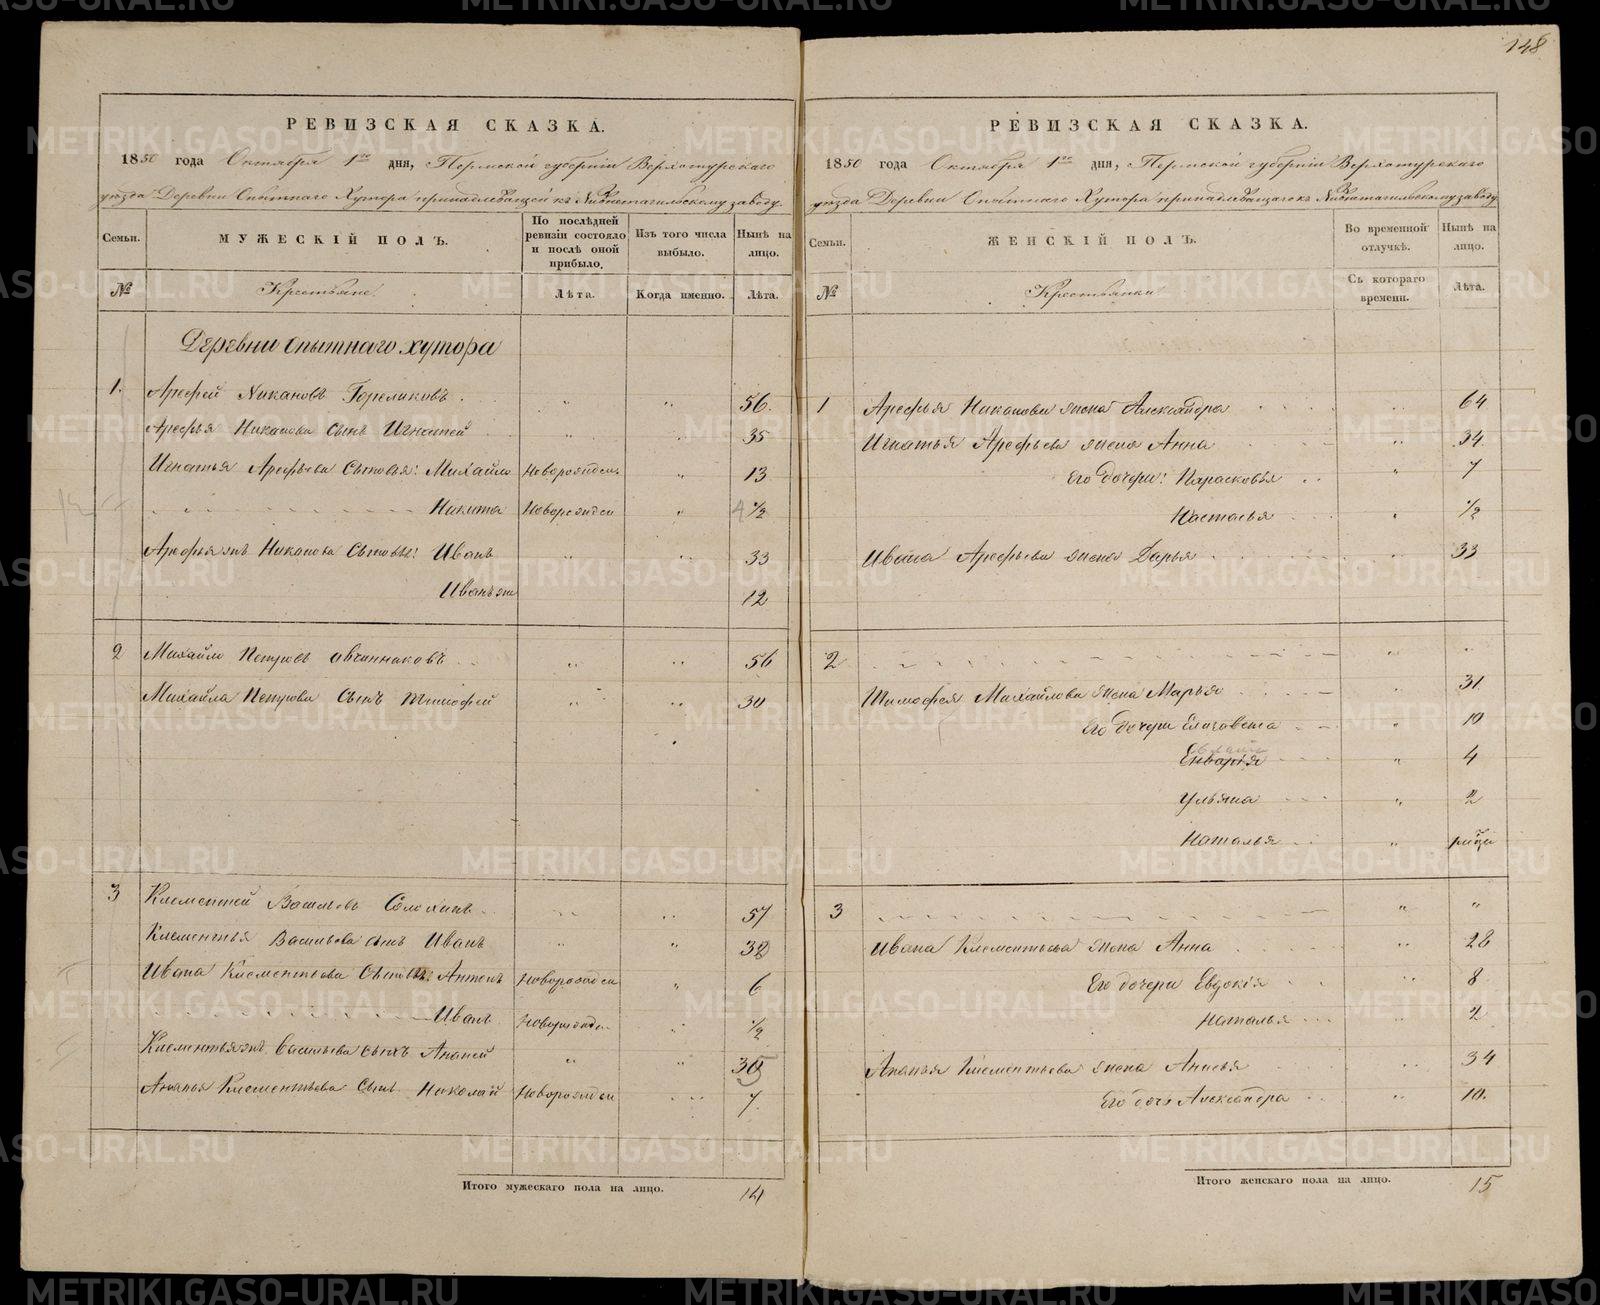 148
РЕВИЗСКАЯ СКАЗКА.
1850 года Октября 1го дня, Пермской губернии Верхотурскаго
уезда Деревни Опытнаго Хутора принадлежащей къ Нижнетагильскому заводу.
Семьи.
МУЖЕСКІЙ ПОЛЪ.
По послѣдней ревизіи состояло и послѣ оной прибыло.
Изъ того числа выбыло.
Нынѣ на лицо.
№
Крестьяне.
Лѣта.
Когда именно.
Лѣта.
Деревни опытнаго хутора
1. Арефей Никановъ Гореликовъ. " " 56.
Арефья Никанова сынъ Игнатей " " 35
Игнатья Арефьева сыновья: Михайло Новорожден " 13
Никита Новорожден " 1/2
Арефья жъ Никанова сыновья: Иванъ " " 33
Иванъ же 12
2 Михайло Петровъ Овчинниковъ " " 56
Михайла Петрова сынъ Тимофей " " 30
3 Клементей Васильевъ Солохинъ " " 57
Клементья Васильева сынъ Иванъ " " 32
Ивана Клементьева сыновья: Антонъ Новорожден " 6
Иванъ Новорожден " 1/2
Клементья жъ Васильева сынъ Ананей " " 35
Ананья Клементьева сынъ Николай Новорожден " 7.
Итого мужескаго пола на лицо. 14
РЕВИЗСКАЯ СКАЗКА.
1850 года Октября 1го дня, Пермской губернии Верхотурскаго
уезда Деревни Опытнаго Хутора принадлежащаго къ Нижнетагильскому заводу
Семьи.
ЖЕНСКІЙ ПОЛЪ.
Во временной отлучкѣ.
Нынѣ на лицо.
№
Крестьянки
Съ котораго времени.
Лѣта.
1 Арефья Никанова жена Александра " 64
Игнатья Арефьева жена Анна " 34
Его дочери: Парасковья " 7
Настасья " 1/2
Ивана Арефьева жена Дарья " 33
2 " "
Тимофея Михайлова жена Марья " 31
Его дочери Елизовета " 10
4
Ульяна " 2
Наталья "
3 " "
Ивана Клементьева жена Анна " 28
Его дочери Евдокія " 8
Наталья " 2
Ананья Клементьева жена Анисья " 34
Его дочь Александра " 10.
Итого женскаго пола на лицо. 15
METRIKI.GASO-URAL.RU